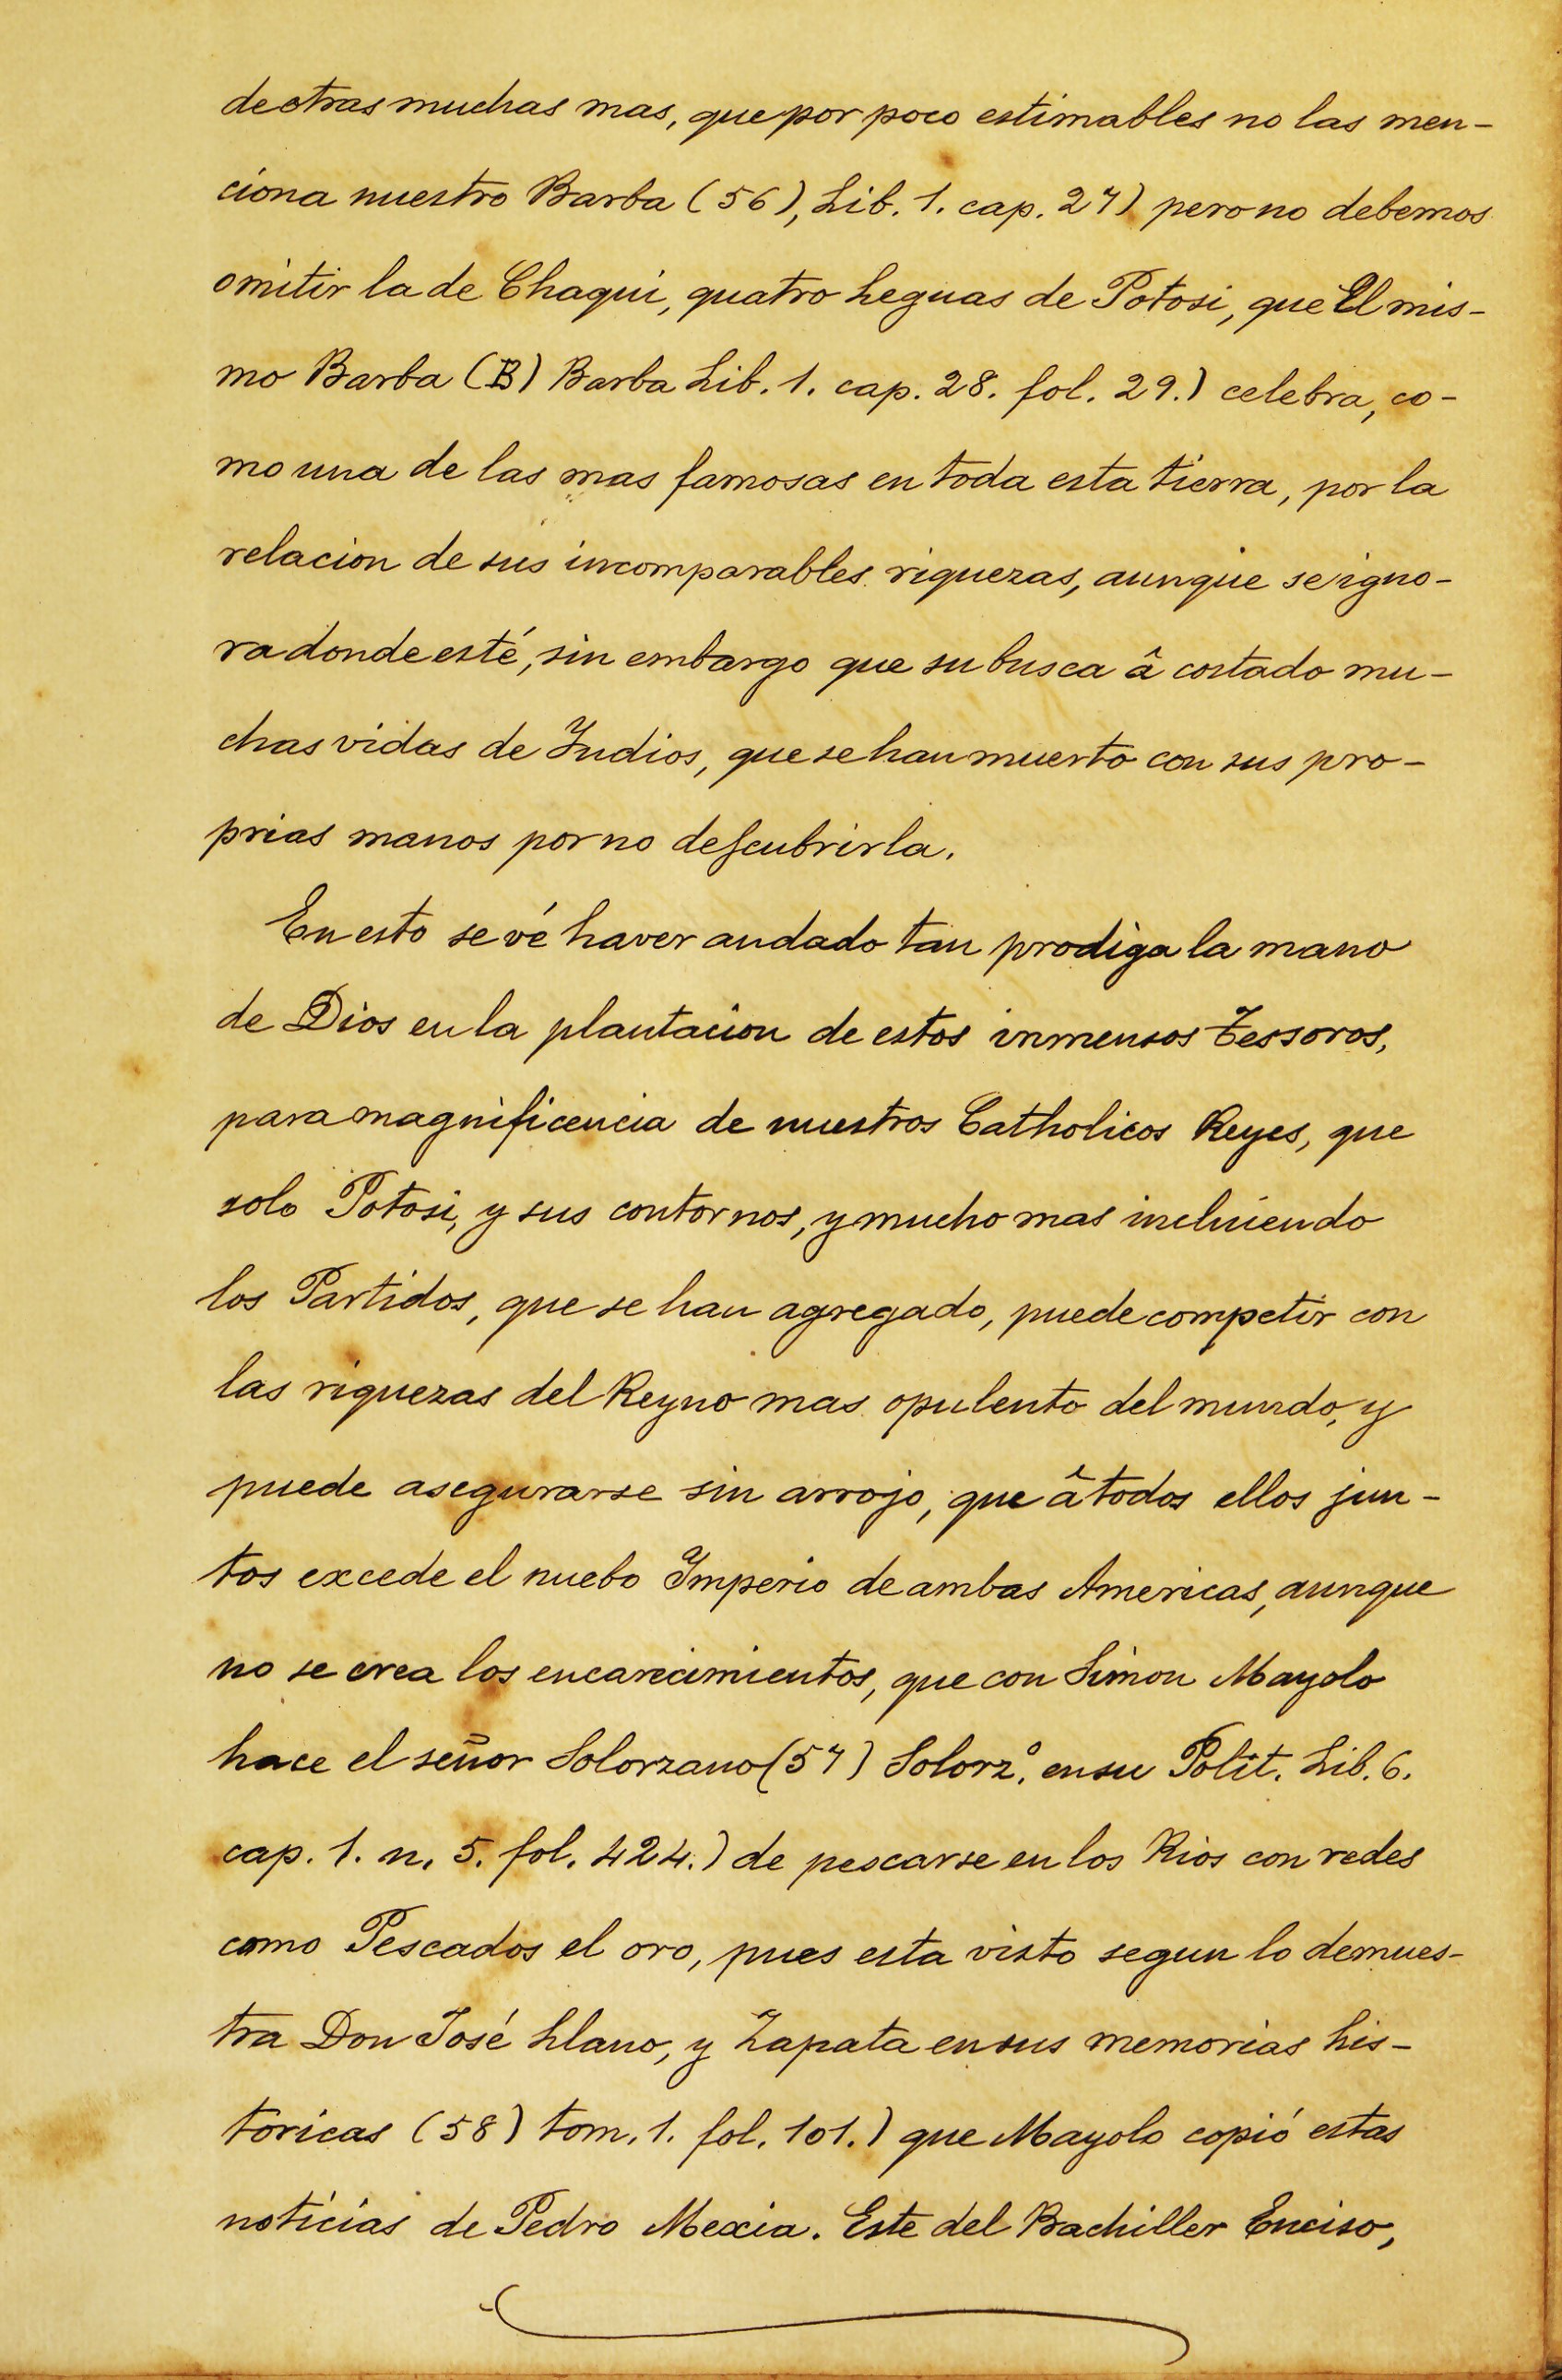 de otras muchas mas, que por poco estimables no las men-
ciona nuestro Barba (56), Lib. 1. cap. 27) pero no debemos
omitir la de Chaqui, quatro Leguas de Potosi, que El mis-
mo Barba (B) Barba Lib. 1. cap. 28. fol. 29.) celebra, co-
mo una de las mas famosas en toda esta tierra, por la
relacion de sus incomparables riquezas, aunque se igno-
ra donde esté, sin embargo que su busca â costado mu-
chas vidas de Indios, que se han muerto con sus pro-
prias manos por no descubrirla.
En esto se vé haver andado tan prodiga la mano
de Dios en la plantacion de estos inmensos Tessoros,
para magnificencia de nuestros Catholicos Reyes, que
solo Potosi, y sus contornos, y mucho mas incluiendo
los Partidos, que se han agregado, puede competir con
las riquezas del Reyno mas opulento del mundo, y
puede asegurarse sin arrojo, que â todos ellos jun-
tos excede el nuebo Imperio de ambas Americas, aunque
no se crea los encarecimientos, que con Simon Mayolo
hace el señor Solorzano (57) Solorz.º en su Polit. Lib. 6.
cap. 1. n. 5. fol. 424.) de pescarse en los Rios con redes
como Pescados el oro, pues esta visto segun lo demues-
tra Don José Llano, y Zapata en sus memorias his-
toricas (58) tom. 1. fol. 101.) que Mayolo copió estas
noticias de Pedro Mexia. Este del Bachiller Enciso,